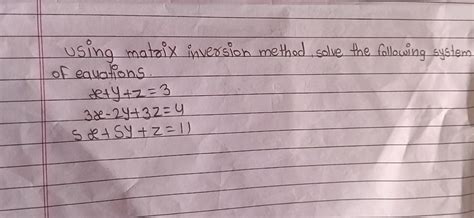 using matrix inversion method, solve the following system
of equations.
x+y+z=3
3x-2y+3z=4
5x+5y+z=11